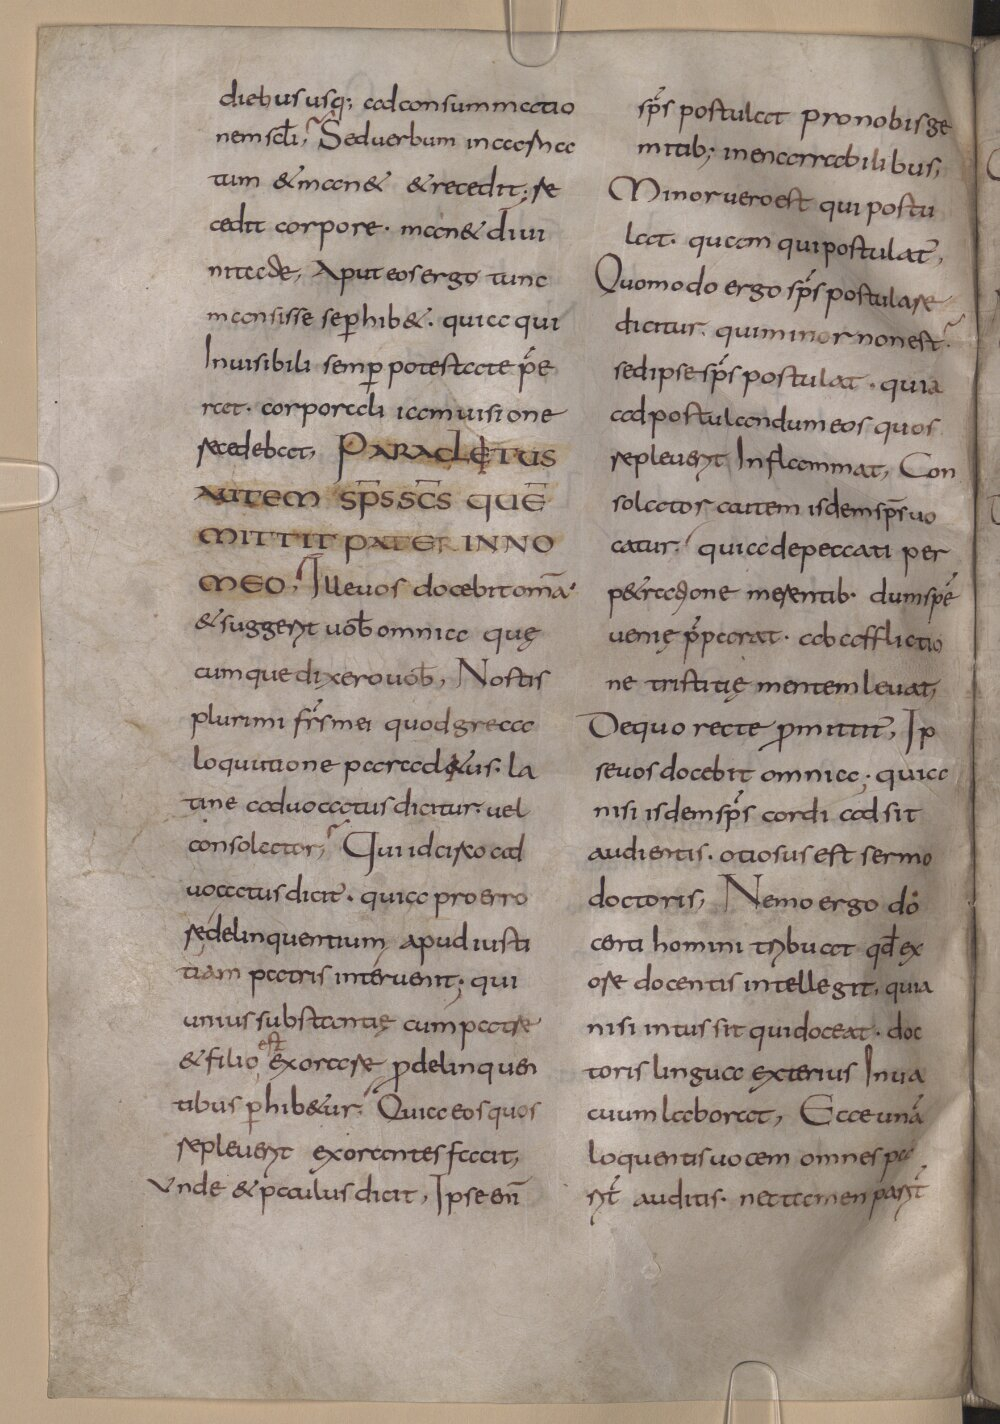 diebus usq; ad consummatio
nem scl̄i, Sed uerbum incarna
tum & man& & recedit; re
cedit corpore. man& diui
nitate, Aput eos ergo tunc
mansisse se p̱hib&. quia qui
Inuisibili semp̱ potestate p̄e
rat. corporali iam uisione
recedebat, PARACLETUS
AUTEM SP̄S SC̄S QUĒ
MITTIT PATER IN NO
MEO, Ille uos docebit om̄a
& suggeret uob̄ omnia quę
cumque dixero uob̄, Nostis
plurimi fr̄s mei quod greca
loquutione paracl&us. la
tine aduocatus dicitur. uel
consolator, Qui idcirco ad
uocatus dicit̄. quia pro erro
re delinquentium apud iusti
tiam patris interuenit; qui
unius substantię cum patre
& filio est exorare p̱ delinquen
tibus p̱hib&ur. Quia eos quos
repleuerit exorantes facit,
Unde & paulus dicit, Ipse enī
sp̄s postulat pro nobis ge
mitib; inenarrabilibus,
Minor uero est qui postu
lat. quam qui postulat̄,
Quomodo ergo sp̄s postulare
dicitur. qui minor non est.
sed ipse sp̄s postulat. quia
ad postulandum eos quos
repleuerit Inflammat, Con
solator autem isdem sp̄s uo
catur. quia de peccati per
p&ratione merentib. dum spē
uenię p̄parat. ab afflictio
ne tristitię mentem leuat,
De quo recte p̱mittit̄, Ip
se uos docebit omnia. quia
nisi isdem sp̄s cordi adsit
audientis. otiosus est sermo
doctoris, Nemo ergo do
centi homini tribuat qd̄ ex
ore docentis intellegit, quia
nisi intus sit qui doceat. doc
toris lingua exterius Inua
cuum laborat, Ecce unā
loquentis uocem omnes pa
rit̄ auditis. nec tamen parit̄